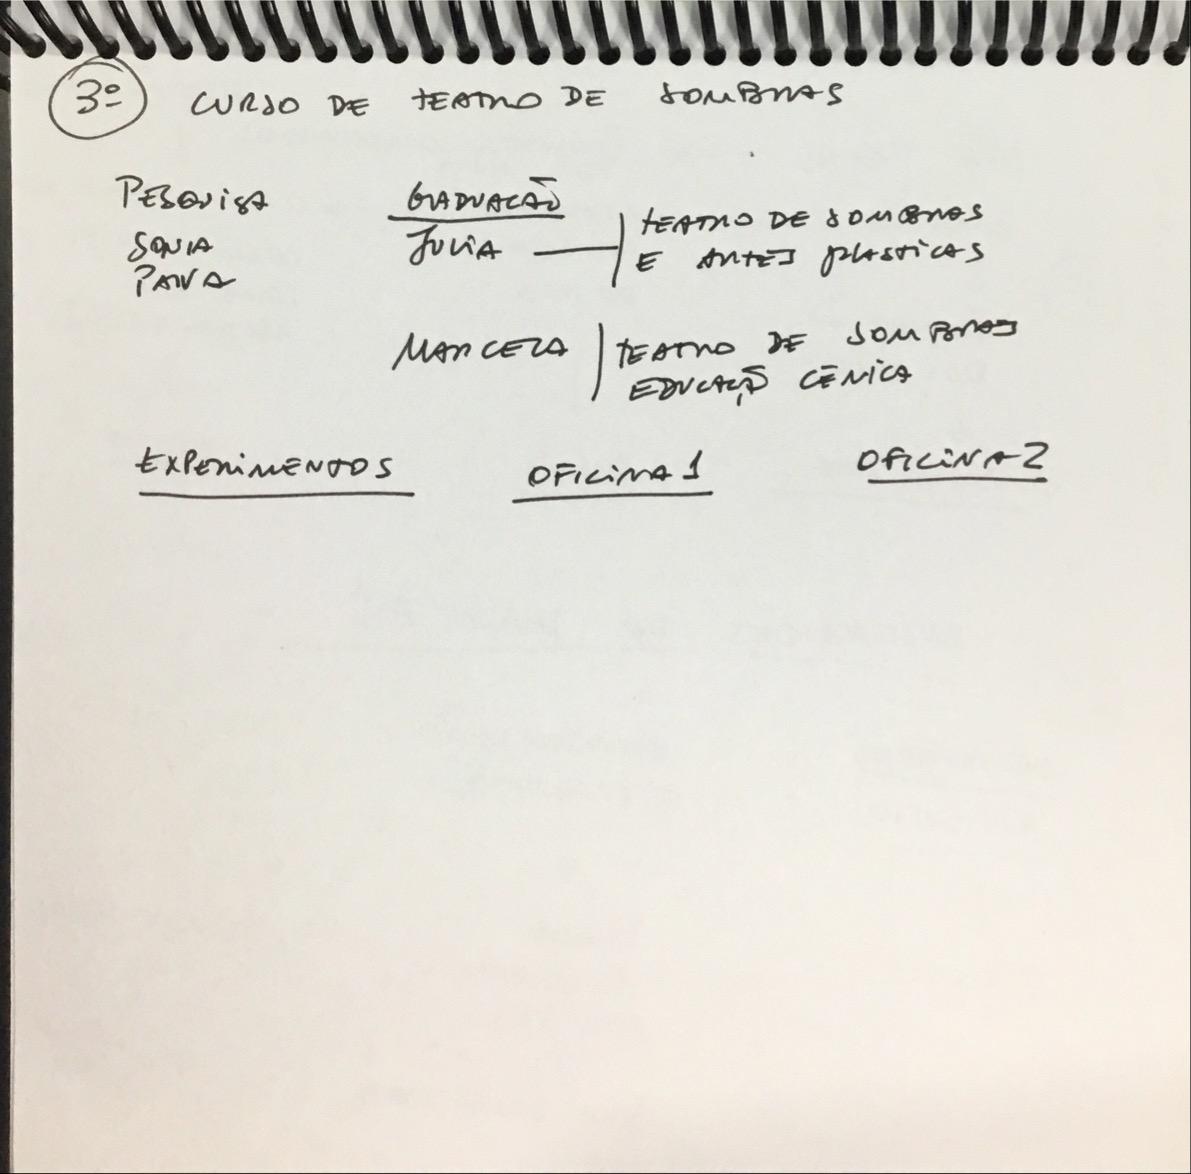 3º CURSO DE TEATRO DE SOMBRAS
PESQUISA
SONIA
PAIVA
GRADUAÇÃO
JULIA
TEATRO DE SOMBRAS
E ARTES PLASTICAS
MARCELA
TEATRO DE SOMBRAS
EDUCAÇÃO CÊNICA
EXPERIMENTOS
OFICINA 1
OFICINA 2